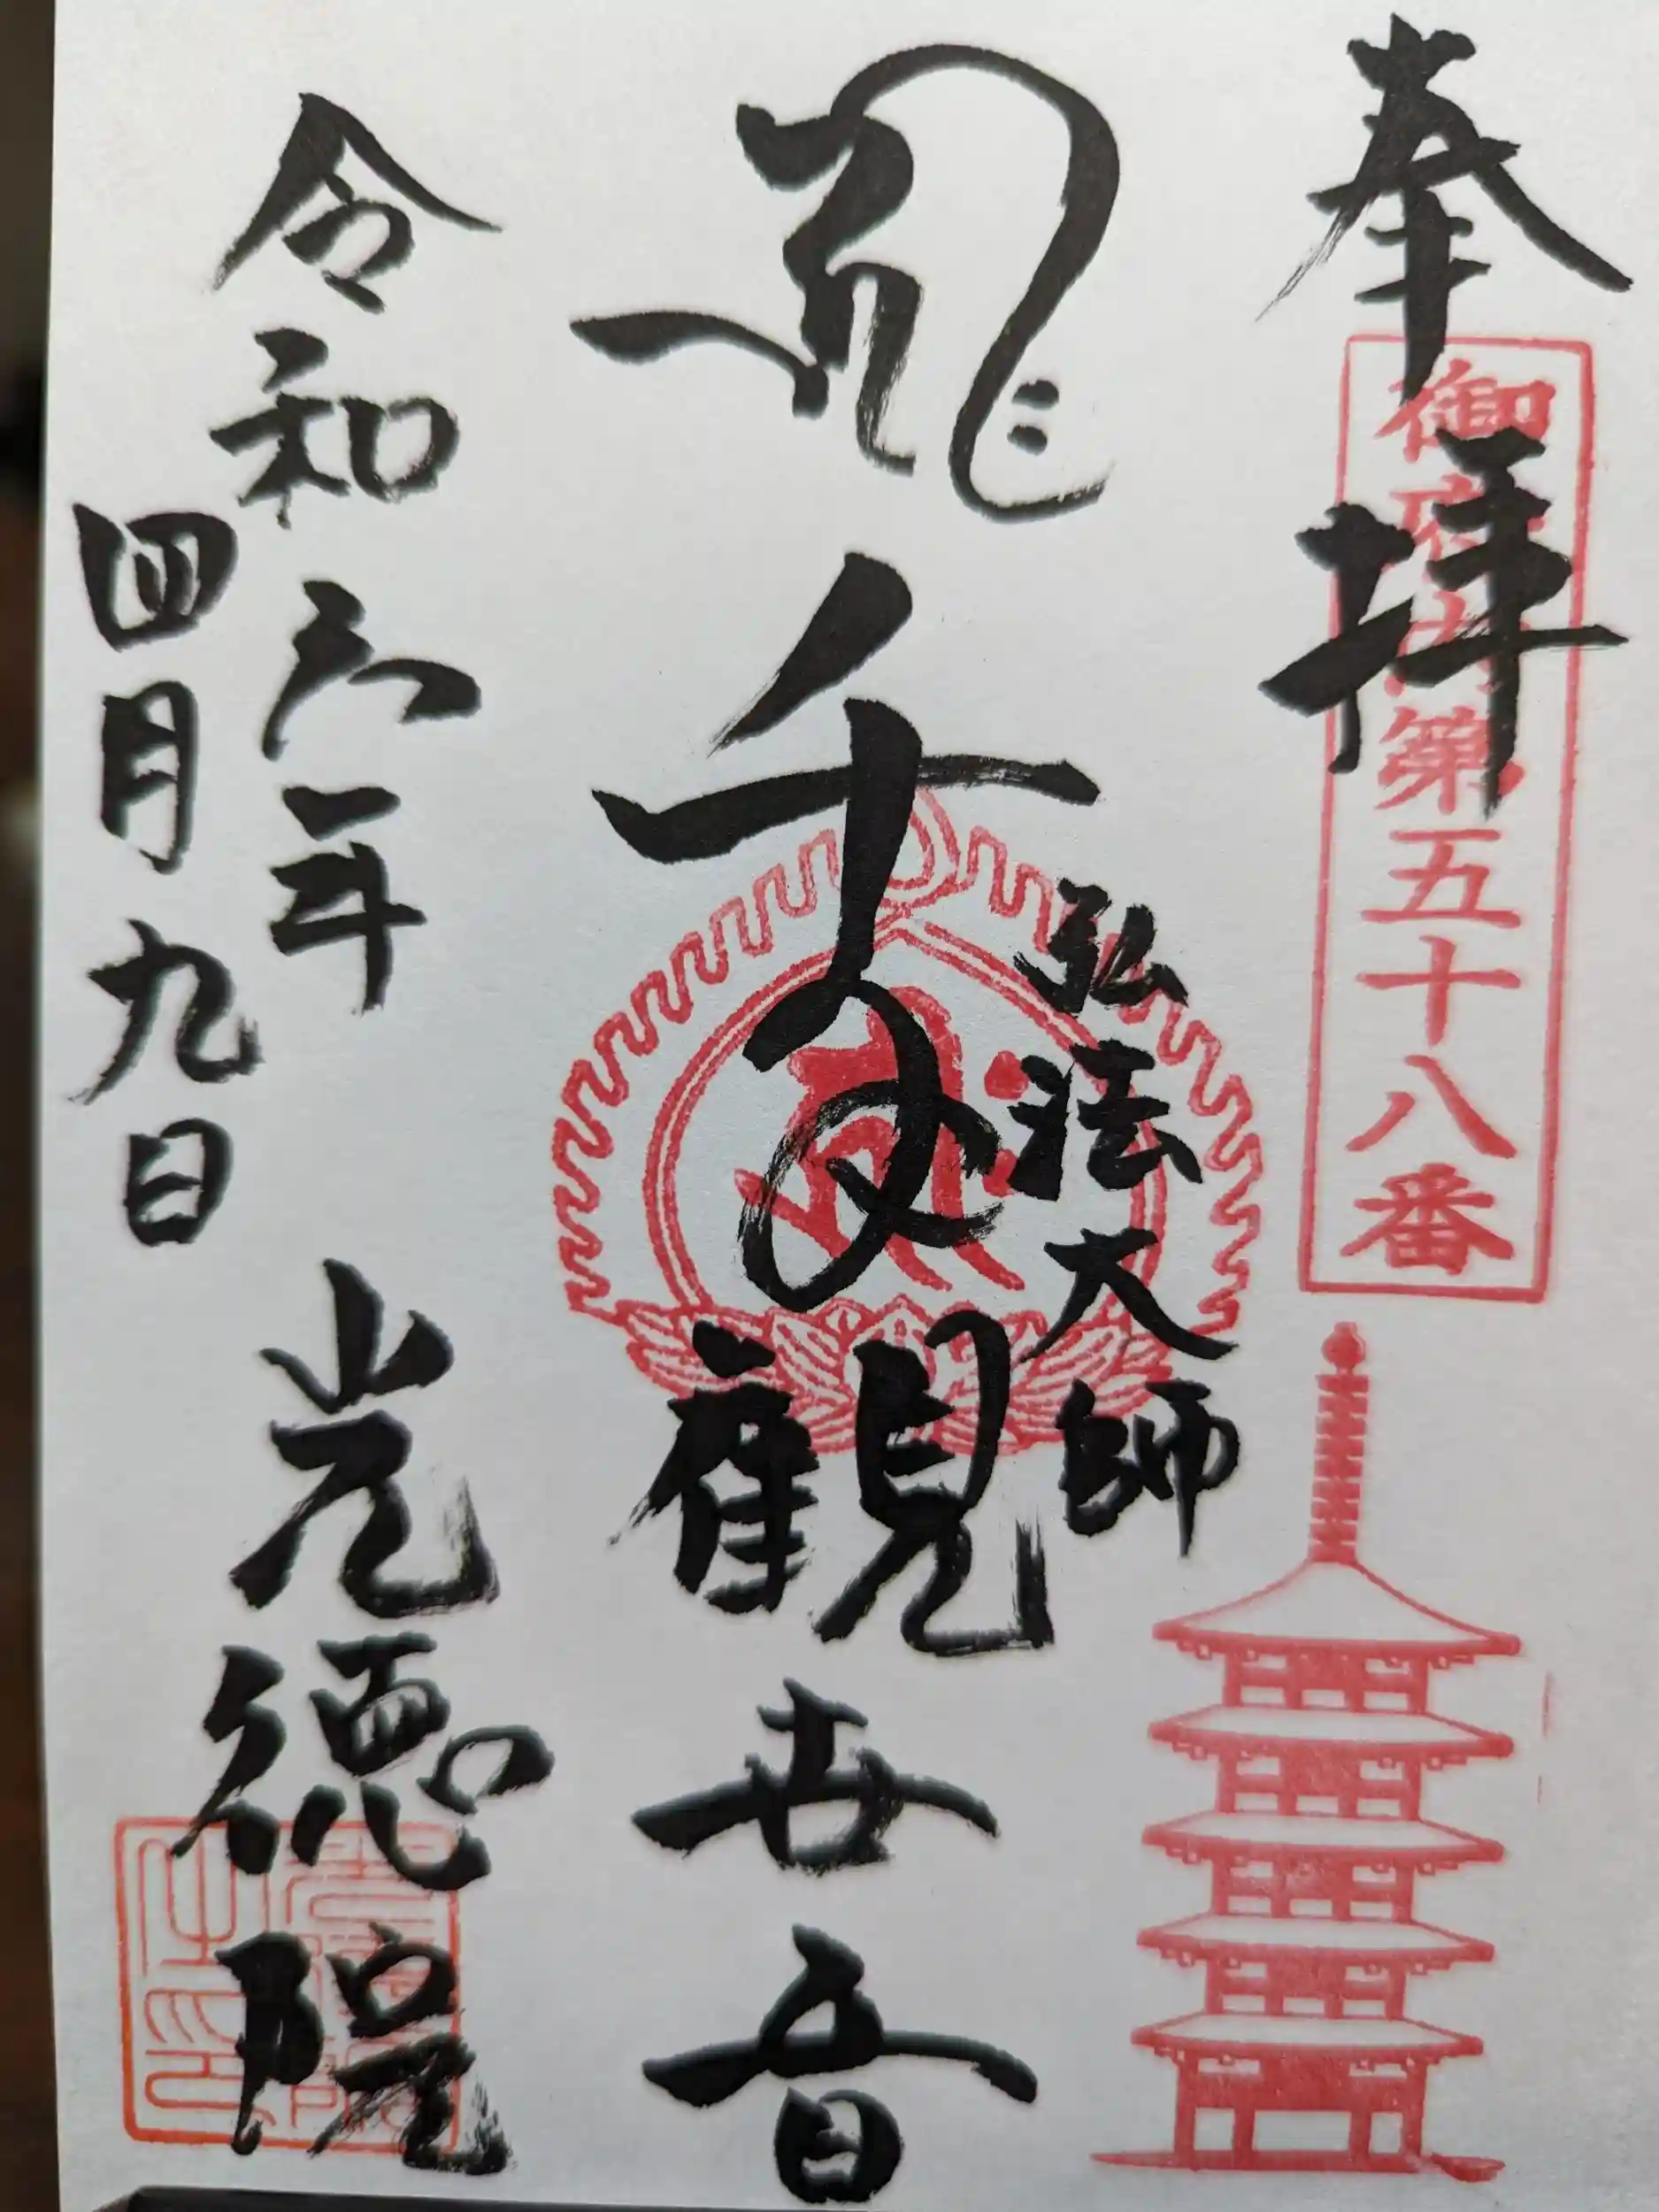 奉拝
御府内第五十八番
弘法大師
千手観世音
令和六年
四月九日
光徳院